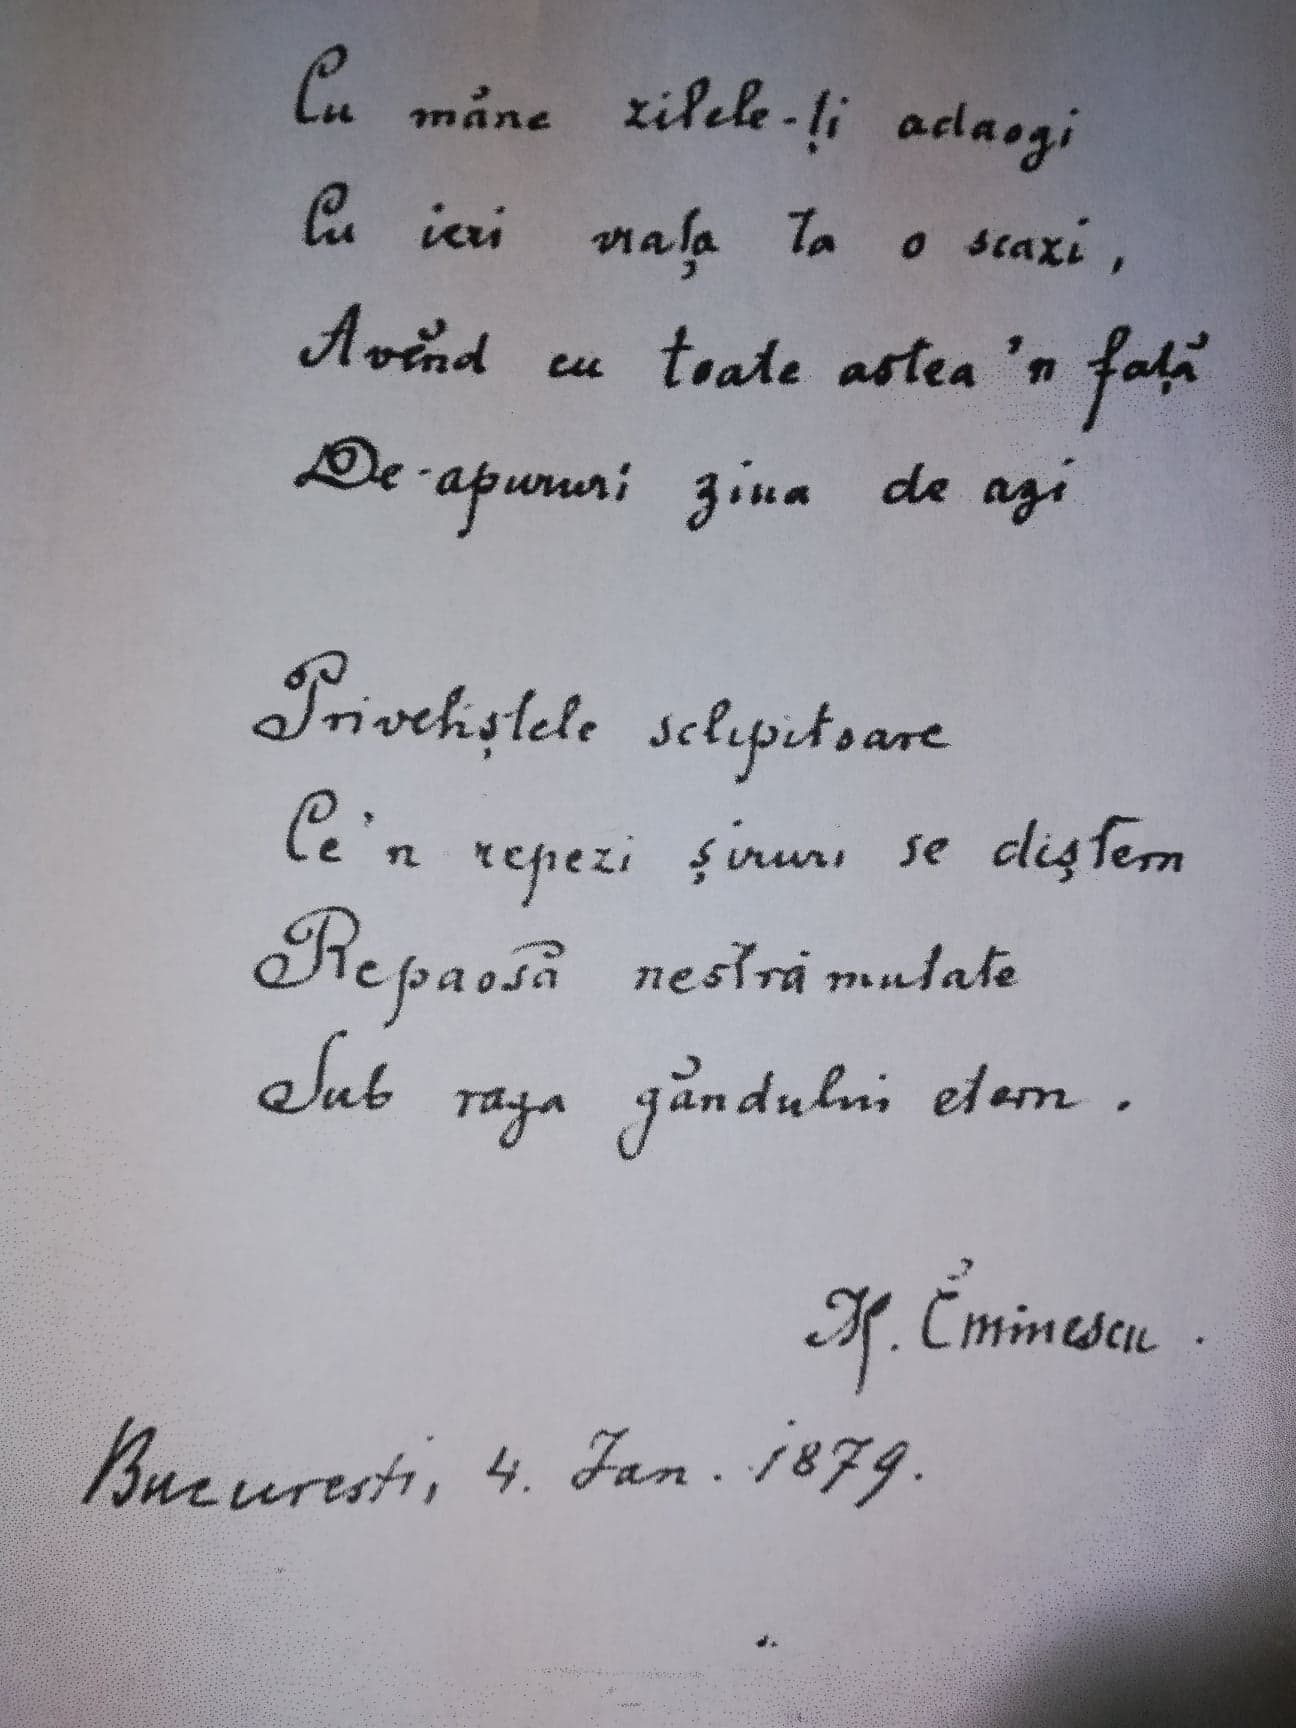 Cu mâne zilele-ți adaogi
Cu ieri viața ta o scazi,
Avênd cu toate astea 'n față
De-apururi ziua de azi
Priveliștele sclipitoare
Ce 'n repezi șiruri se diștern
Repaosă nestrămutate
Sub raza gândului etern.
M. Eminescu.
Bucuresti, 4. Jan. 1879.